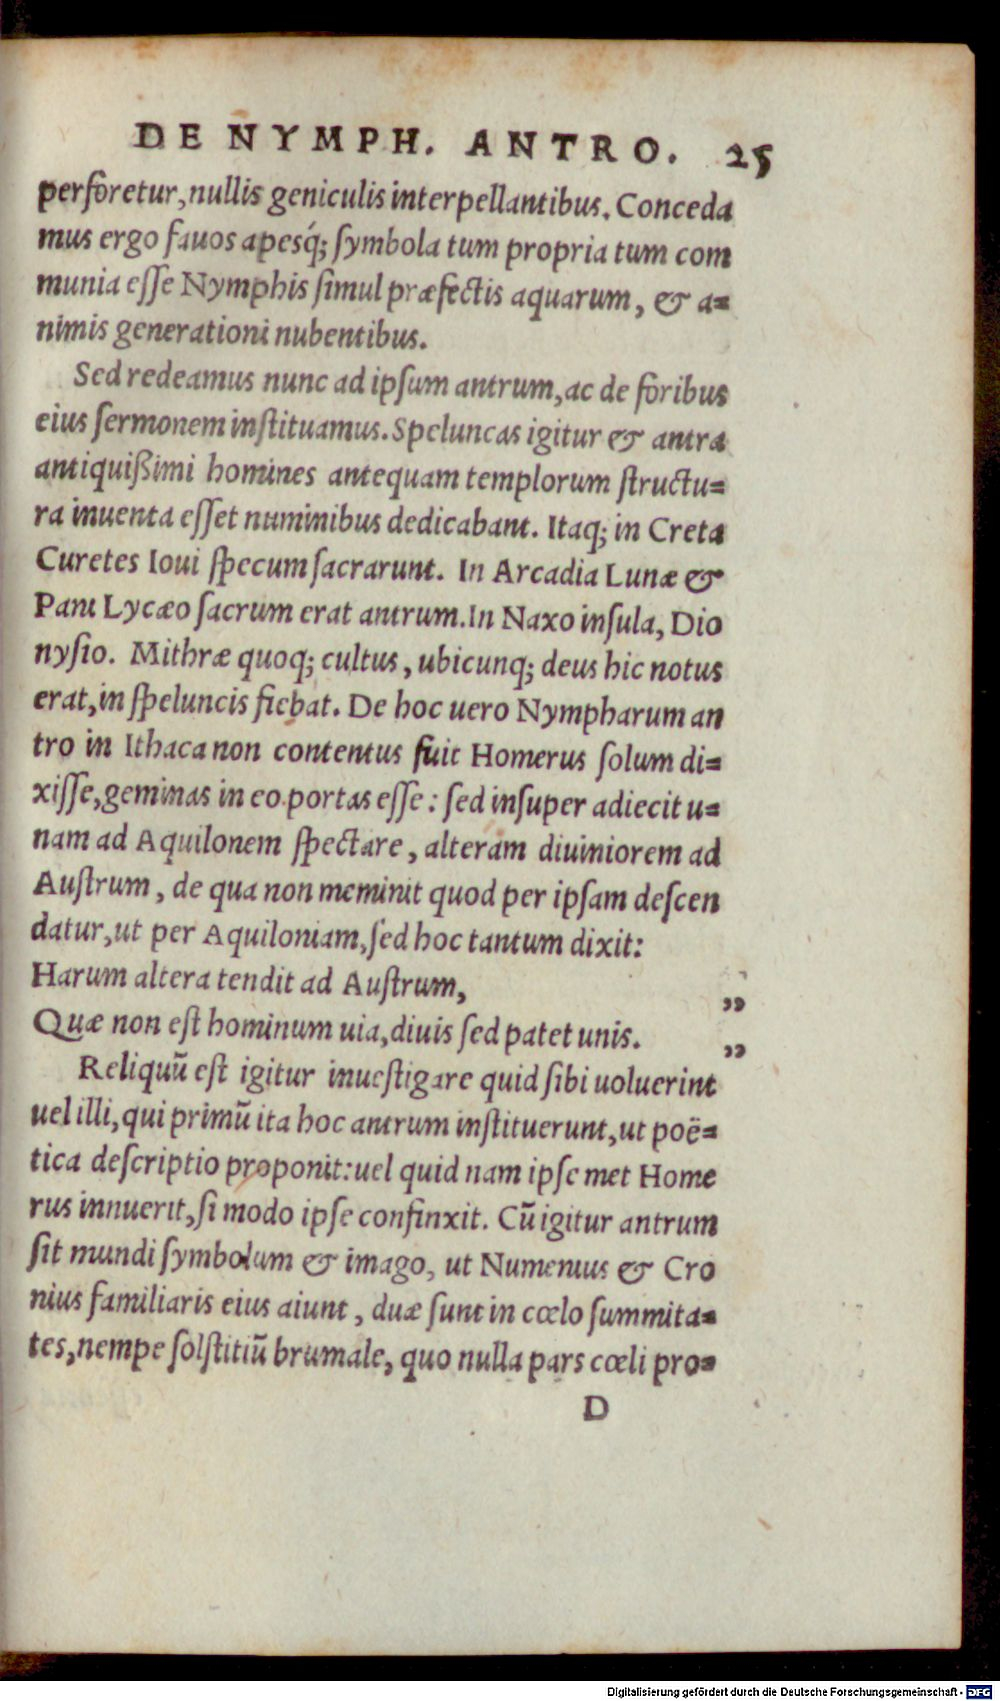 DE NYMPH. ANTRO. 25
perforetur, nullis geniculis interpellantibus. Conceda
mus ergo fauos apesq́; ſymbola tum propria tum com
munia eſſe Nymphis ſimul præfectis aquarum, & a=
nimis generationi nubentibus.
Sed redeamus nunc ad ipſum antrum, ac de foribus
eius ſermonem inſtituamus. Speluncas igitur & antra
antiquißimi homines antequam templorum ſtructu=
ra inuenta eſſet numinibus dedicabant. Itaq; in Creta
Curetes Ioui ſpecum ſacrarunt. In Arcadia Lunæ &
Pani Lycæo ſacrum erat antrum. In Naxo inſula, Dio
nyſio. Mithræ quoq; cultus, ubicunq; deus hic notus
erat, in ſpeluncis fiebat. De hoc uero Nympharum an
tro in Ithaca non contentus fuit Homerus ſolum di=
xiſſe, geminas in eo portas eſſe: ſed inſuper adiecit u=
nam ad Aquilonem ſpectare, alteram diuiniorem ad
Auſtrum, de qua non meminit quod per ipſam deſcen
datur, ut per Aquiloniam, ſed hoc tantum dixit:
Harum altera tendit ad Auſtrum, „
Quæ non eſt hominum uia, diuis ſed patet unis. „
Reliquũ eſt igitur inueſtigare quid ſibi uoluerint
uel illi, qui primũ ita hoc antrum inſtituerunt, ut poë=
tica deſcriptio proponit: uel quid nam ipſe met Home
rus innuerit, ſi modo ipſe confinxit. Cũ igitur antrum
ſit mundi ſymbolum & imago, ut Numenius & Cro
nius familiaris eius aiunt, duæ ſunt in cœlo ſummita=
tes, nempe ſolſtitiũ brumale, quo nulla pars cœli pro=
D
Digitalisierung gefördert durch die Deutsche Forschungsgemeinschaft - DFG